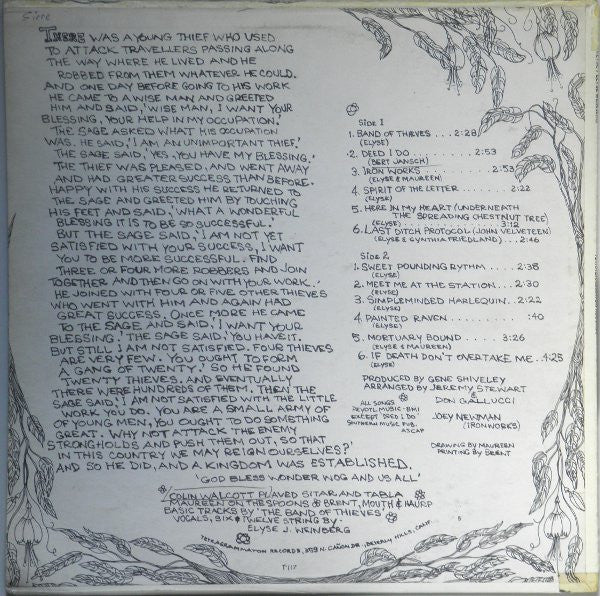 THERE WAS A YOUNG THIEF WHO USED
TO ATTACK TRAVELLERS PASSING ALONG
THE WAY WHERE HE LIVED AND HE
ROBBED FROM THEM WHATEVER HE COULD.
AND ONE DAY BEFORE GOING TO HIS WORK
HE CAME TO A WISE MAN AND GREETED
HIM AND SAID, 'WISE MAN, I WANT YOUR
BLESSING, YOUR HELP IN MY OCCUPATION.'
THE SAGE ASKED WHAT HIS OCCUPATION
WAS. HE SAID, 'I AM AN UNIMPORTANT THIEF.'
THE SAGE SAID, 'YES, YOU HAVE MY BLESSING.'
THE THIEF WAS PLEASED, AND WENT AWAY
AND HAD GREATER SUCCESS THAN BEFORE.
HAPPY WITH HIS SUCCESS HE RETURNED TO
THE SAGE AND GREETED HIM BY TOUCHING
HIS FEET AND SAID, 'WHAT A WONDERFUL
BLESSING IT IS TO BE SO SUCCESSFUL.'
BUT THE SAGE SAID, 'I AM NOT YET
SATISFIED WITH YOUR SUCCESS, I WANT
YOU TO BE MORE SUCCESSFUL. FIND
THREE OR FOUR MORE ROBBERS AND JOIN
TOGETHER AND THEN GO ON WITH YOUR WORK.'
HE JOINED WITH FOUR OR FIVE OTHER THIEVES
WHO WENT WITH HIM AND AGAIN HAD
GREAT SUCCESS. ONCE MORE HE CAME
TO THE SAGE AND SAID, 'I WANT YOUR
BLESSING.' THE SAGE SAID, 'YOU HAVE IT.
BUT STILL I AM NOT SATISFIED. FOUR THIEVES
ARE VERY FEW. YOU OUGHT TO FORM
A GANG OF TWENTY.' SO HE FOUND
TWENTY THIEVES. AND EVENTUALLY
THERE WERE HUNDREDS OF THEM. THEN THE
SAGE SAID, 'I AM NOT SATISFIED WITH THE LITTLE
WORK YOU DO. YOU ARE A SMALL ARMY OF
OF YOUNG MEN, YOU OUGHT TO DO SOMETHING
GREAT. WHY NOT ATTACK THE ENEMY
STRONGHOLDS AND PUSH THEM OUT, SO THAT
IN THIS COUNTRY WE MAY REIGN OURSELVES?'
AND SO HE DID, AND A KINGDOM WAS ESTABLISHED.
'GOD BLESS WONDER WOG AND US ALL'
COLIN WALCOTT PLAYED SITAR AND TABLA
MAUREEN ON THE SPOONS & BRENT, MOUTH & HAURP
BASIC TRACKS BY 'THE BAND OF THIEVES'
VOCALS, SIX & TWELVE STRING BY-
ELYSE J. WEINBERG
TETRAGRAMMATON RECORDS, 359 N. CAÑON DR., BEVERLY HILLS, CALIF.
T-117
SIDE 1
1. BAND OF THIEVES . . . 2:28
(ELYSE)
2. DEED I DO . . . . . 2:53
(BERT JANSCH)
3. IRON WORKS . . . . . 2:53
(ELYSE & MAUREEN)
4. SPIRIT OF THE LETTER . . . . 2:22
(ELYSE)
5. HERE IN MY HEART (UNDERNEATH
THE SPREADING CHESTNUT TREE)
(ELYSE) . . . . 3:12
6. LAST DITCH PROTOCOL (JOHN VELVETEEN)
(ELYSE & CYNTHIA FRIEDLAND) . . . 2:46
SIDE 2
1. SWEET POUNDING RYTHM . . . 2:38
(ELYSE)
2. MEET ME AT THE STATION . . . 2:30
(ELYSE)
3. SIMPLEMINDED HARLEQUIN . . 2:22
(ELYSE)
4. PAINTED RAVEN . . . . . :40
(ELYSE)
5. MORTUARY BOUND . . . . 3:26
(ELYSE & MAUREEN)
6. IF DEATH DON'T OVERTAKE ME . . 4:25
(ELYSE)
PRODUCED BY GENE SHIVELEY
ARRANGED BY JEREMY STEWART
&
DON GALLUCCI
JOEY NEWMAN
(IRONWORKS)
ALL SONGS
REVOTL MUSIC - BMI
EXCEPT DEED I DO
SOUTHERN MUSIC PUB.
ASCAP
DRAWING BY MAUREEN
PRINTING BY BRENT